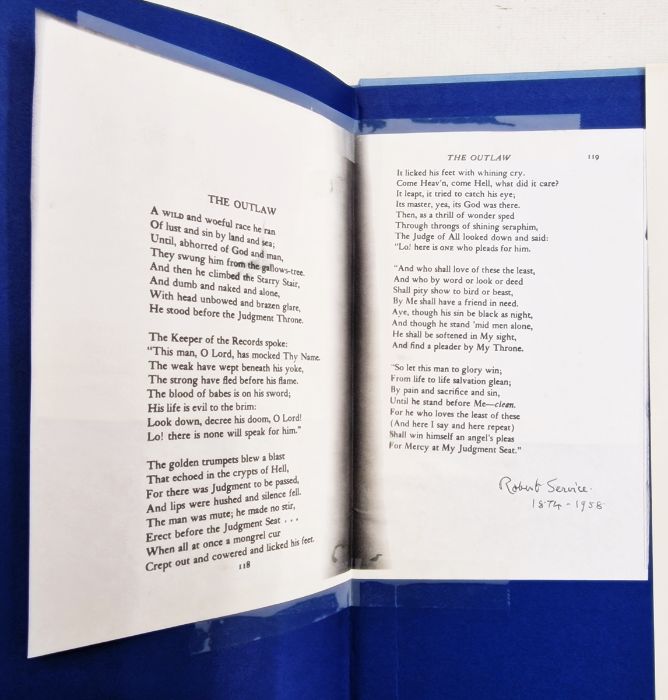 THE OUTLAW
A WILD and woeful race he ran
Of lust and sin by land and sea;
Until, abhorred of God and man,
They swung him from the gallows-tree.
And then he climbed the Starry Stair,
And dumb and naked and alone,
With head unbowed and brazen glare,
He stood before the Judgment Throne.
The Keeper of the Records spoke:
"This man, O Lord, has mocked Thy Name.
The weak have wept beneath his yoke,
The strong have fled before his flame.
The blood of babes is on his sword;
His life is evil to the brim:
Look down, decree his doom, O Lord!
Lo! there is none will speak for him."
The golden trumpets blew a blast
That echoed in the crypts of Hell,
For there was Judgment to be passed,
And lips were hushed and silence fell.
The man was mute; he made no stir,
Erect before the Judgment Seat . . .
When all at once a mongrel cur
Crept out and cowered and licked his feet.
118
THE OUTLAW 119
It licked his feet with whining cry.
Come Heav'n, come Hell, what did it care?
It leapt, it tried to catch his eye;
Its master, yea, its God was there.
Then, as a thrill of wonder sped
Through throngs of shining seraphim,
The Judge of All looked down and said:
"Lo! here is ONE who pleads for him.
"And who shall love of these the least,
And who by word or look or deed
Shall pity show to bird or beast,
By Me shall have a friend in need.
Aye, though his sin be black as night,
And though he stand 'mid men alone,
He shall be softened in My sight,
And find a pleader by My Throne.
"So let this man to glory win;
From life to life salvation glean;
By pain and sacrifice and sin,
Until he stand before Me—clean.
For he who loves the least of these
(And here I say and here repeat)
Shall win himself an angel's pleas
For Mercy at My Judgment Seat."
Robert Service.
1874-1958